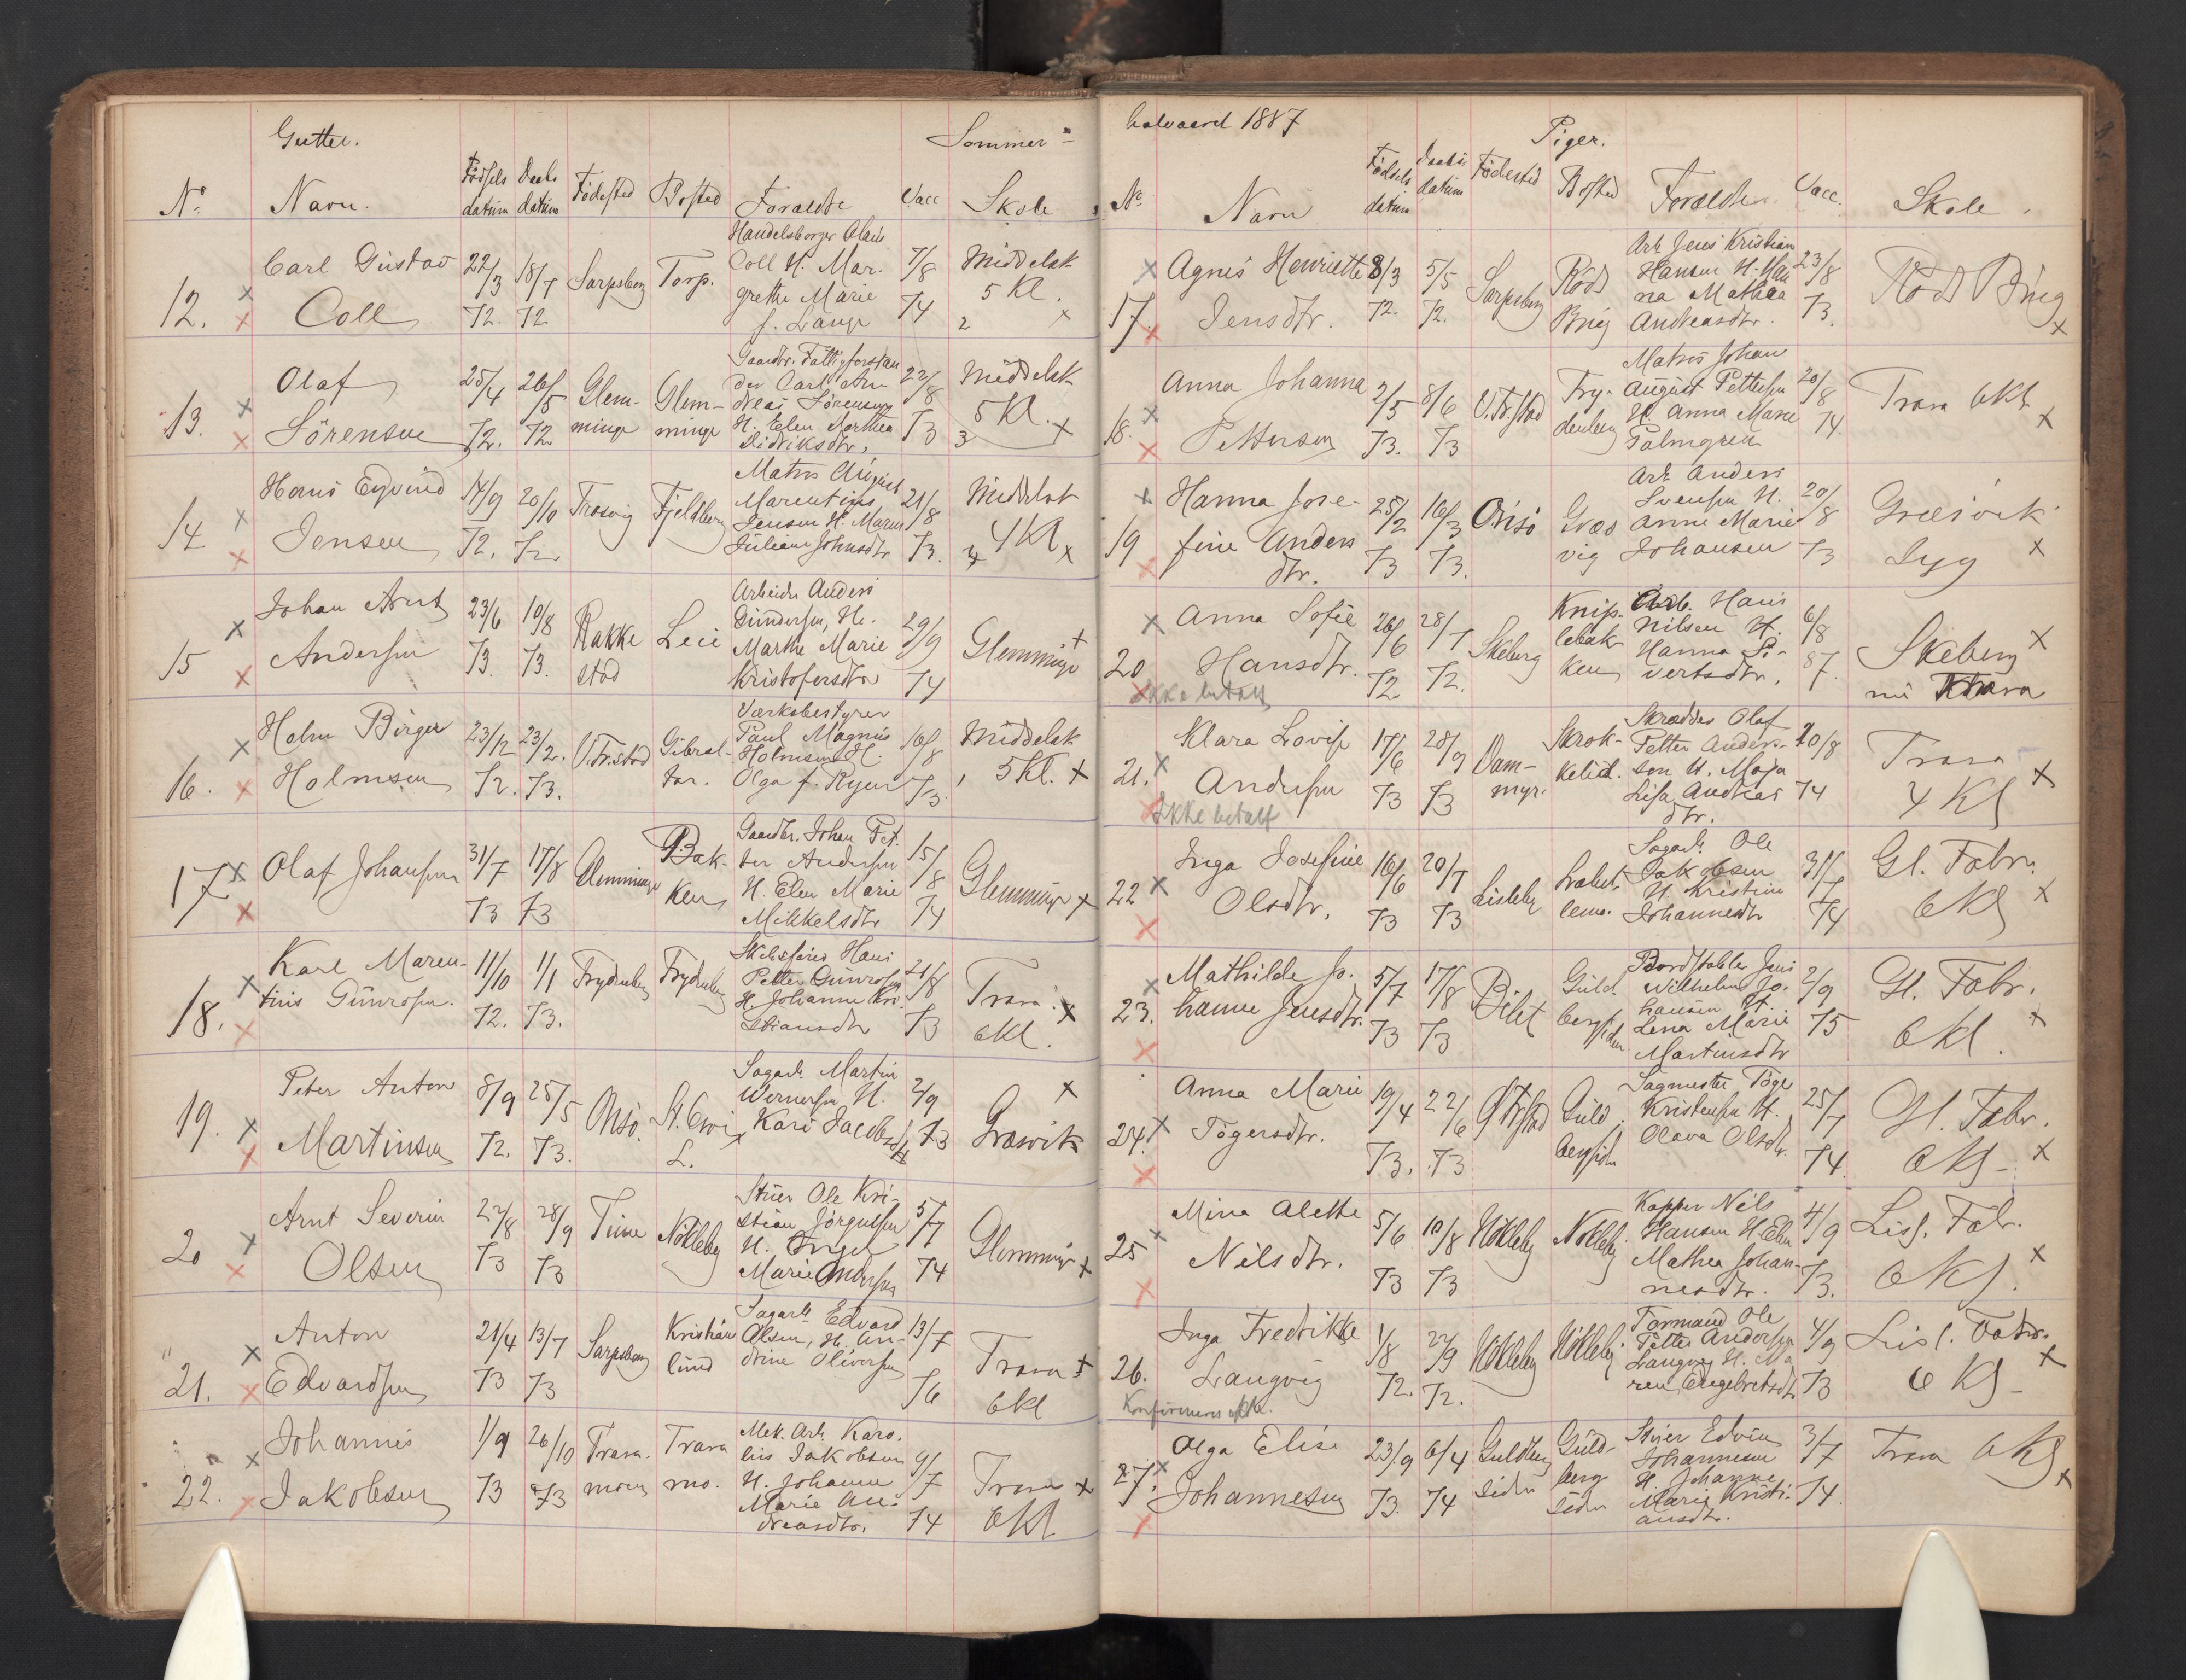 Gutter.
Sommer=
No.
Navn.
Födsels datum
Daabs datum
Födested
Bosted
Forældre
Vacc
Skole
12. Carl Gustav Coll
22/3 72.
18/7 72
Sarpsborg
Torp.
Handelsborger Claus
Coll H. Mar-
grethe Marie
f. Lange
7/8 74
Middelsk
5 Kl.
2
13. Olaf Sörensen
25/4 72.
26/5 72
Glem-
minge
Glem-
minge
Gaardbr. Fattigforstan
der Carl An
dreas Sörensen
H. Elen Dorthea
Didriksdtr.
22/8 73
Middelsk
5 Kl.
3
14 Hans Eyvind Jensen
14/9 72.
20/10 72
Trosvig
Fjeldberg
Matros August
Marentius
Jensen H. Maren
Juliane Johnsdtr
21/8 73.
Middelsk
4 Kl
4
15 Johan Arnt Andersen
23/6 73.
10/8 73.
Rakke
stad
Leie
Arbeider Anders
Gundersen, H.
Marthe Marie
Kristofersdtr
29/9 74
Glemminge
16. Holm Birger Holmsen
23/12 72.
23/2. 73.
V. Fr.stad
Gibral-
tar.
Værksbestyrer
Paul Magnus
Holmsen H.
Olga f. Ryen
16/8 73.
Middelsk
5 Kl.
17 Olaf Johansen
31/7 73
17/8 73
Glemminge
Bak-
ken
Gaardbr. Johan Pet.
ter Andersen
H. Elen Marie
Mikkelsdtr
15/8 74
Glemminge
18. Karl Maren-
tius Gunrosen.
11/10 72.
1/1 73.
Frydenberg
Frydenberg
Skibsfører Hans
Petter Gunrosen
H. Johanne Kri-
stiansdtr
21/8 73
Trara
6kl.
19. Peter Anton
Martinsen
8/9 72.
25/5 73.
Onsö.
St. Croix
L.
Sagarb. Martin
Wernersen H.
Kari Jacobsdtr
2/9 73
Græsvik
20 Arnt Severin
Olsen
22/8 73
28/9 73
Tune
Nökleby
Stuer Ole Kri-
stian Jörgensen
H. Inger
Marie
5/7 74
Glemminge
21. Anton
Edvardsen
21/4 73
13/7 73
Sarpsborg
Kristian
lund
Sagarb. Edvard
Olsen, H. An-
drine Oliversen
13/7 76
Trara
6kl
22. Johannes
Jakobsen
1/9 73
26/10 73
Trara-
moen
Trara
mo.
Mek. Arb. Karo.
lius Jakobsen
H. Johanne
Marie An-
dreasdtr.
9/7 74
Trara
6Kl
halvaaret 1887
Piger.
No.
Navn
Födsels datum
Daabs datum
Födested
Bosted
Forældre
Vacc.
Skole.
17. Agnes Henriette
Jensdtr.
8/3 72.
5/5 72.
Sarpsborg
Röds
Brug
Arb. Jens Kristian
Hansen H. Han
na Mathea
Andreasdtr.
23/8 73.
Röds Brug
18. Anna Johanna
Pettersen
2/5 73.
8/6 73
V. Fr.stad
Fry-
denberg
Matros Johan
August Pettersen
H. Anna Marie
Palmgren
20/8 74.
Trara 6kl
19 Hanna Jose-
fine Anders
dtr.
25/2 73
16/3 73.
Onsö
Græs
vig
Arb. Anders
Svensen H.
Anne Marie
Johansen
20/8 73
Græsvik
Syg
20 Anna Sofie
Hansdtr.
26/6 72
28/7 72.
Skeberg
Knips-
lebak
ken
Arb. Hans
Nilsen H.
Hanna Si-
vertsdtr.
6/8 87.
Skeberg
nu Trara
Ikke betalt
21. Klara Lovise
Andersen
17/6 73
28/9 73
Dam-
myr.
Skrok-
kelid.
Skrædder Olaf
Petter Anders-
son H. Maja
Lisa Andreas
dtr.
20/8 74
Trara
4 Kl
Ikke betalt
22 Inga Josefine
Olsdtr.
16/6 73
20/7 73
Lisleby
Sagarb. Ole
Jakobsen
H. Kristine
Johannesdtr
31/7 74
Gl. Fabr.
6Kl
23. Mathilde Jo-
hanne Jensdtr.
5/7 73
17/8 73
Bilet
Guld-
bergsiden
Bordstabler Jens
Wilhelm Jo-
hansen H.
Lena Marie
Martinsdtr
2/9 75
Gl. Fabr.
6Kl.
24. Anna Marie
Tögersdtr.
19/4 73.
22/6 73
G. Fr.stad
Guld-
bergsiden
Sagmester Töger
Kristensen H.
Olava Olsdtr.
25/7 74.
Gl. Fabr.
6Kl-
25 Mina Alette
Nilsdtr.
5/6 73
10/8 73
Nökleby
Nökleby
Kapper Nils
Hansen H. Elen
Mathea Johan-
nesdtr.
4/9 73.
Lisl. Fab.
6Kl.
26. Inga Fredrikke
Langvig
1/8 72.
22/9 72.
Nökleby
Nökleby
Formand Ole
Petter Andersen
Langvig H. Ma
ren Engebretsdtr
4/9 73
Lisl. Fabr.
6 Kl-
Konfirmeres ikke.
27. Olga Elise
Johannesen
23/9 73.
6/4 74
Guldberg
siden
Guld-
berg
siden
Stuer Edvin
Johannesen
H. Johanne
Marie Kristi-
ansdtr.
3/7 74.
Trara 6Kl